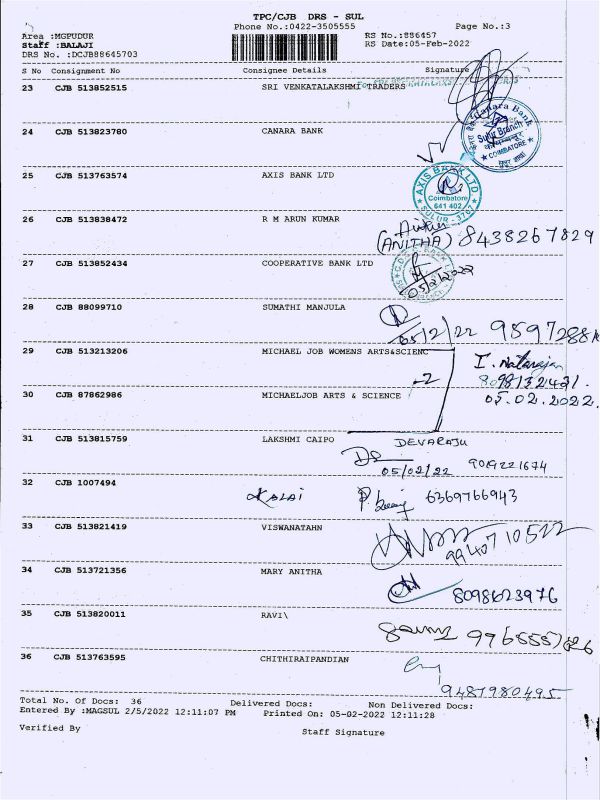 TPC/CJB DRS - SUL
Phone No.:0422-3505555 Page No.:3
Area :MGPUDUR RS No.:886457
Staff :BALAJI RS Date:05-Feb-2022
DRS No. :DCJB88645703
S No Consignment No Consignee Details Signature
23 CJB 513852515 SRI VENKATALAKSHMI TRADERS
24 CJB 513823780 CANARA BANK
Canara Bank
Sulur Branch
COIMBATORE
25 CJB 513763574 AXIS BANK LTD
AXIS BANK LTD
Coimbatore
641 402
SULUR - 3767
26 CJB 513838472 R M ARUN KUMAR
(ANITHA) 8438267829
27 CJB 513852434 COOPERATIVE BANK LTD
05/2/2022
28 CJB 88099710 SUMATHI MANJULA
05/2/22 95972881
29 CJB 513213206 MICHAEL JOB WOMENS ARTS&SCIENC
I. Natarajan
8098132431.
30 CJB 87862986 MICHAELJOB ARTS & SCIENCE
-2
05.02.2022.
31 CJB 513815759 LAKSHMI CAIPO
DEVARAJU
05/02/22 9019221674
32 CJB 1007494
KALAI 6369766943
33 CJB 513821419 VISWANATAHN
9940710522
34 CJB 513721356 MARY ANITHA
8098623976
35 CJB 513820011 RAVI\
36 CJB 513763595 CHITHIRAIPANDIAN
9487980495
Total No. Of Docs: 36 Delivered Docs: Non Delivered Docs:
Entered By :MAGSUL 2/5/2022 12:11:07 PM Printed On: 05-02-2022 12:11:28
Verified By Staff Signature